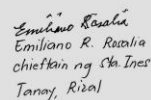 Emiliano Rosalia
Emiliano R. Rosalia
chieftain ng Sta. Ines
Tanay, Rizal